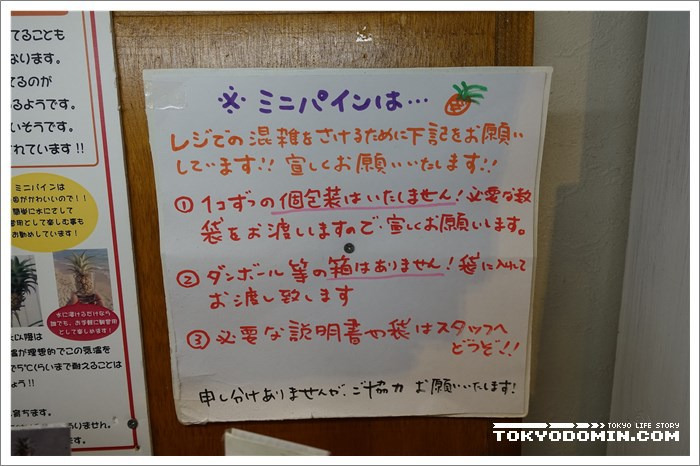 てることも
なります。
てるのが
るようです。
いそうです。
されています!!
ミニパインは
がかわいいので!!
簡単に水にさして
用として楽しむ事も
お勧めしています!
水に溶けるだけなら
誰でも、お手軽に観賞用
として楽しめます!
以降は
が理想的でこの気温を
で5℃くらいまで耐えることは
ょう!!
育ちます。
ありません。
す。
※ミニパインは…
レジでの混雑をさけるために下記をお願い
しています!! 宜しくお願いいたします!!
① 1コずつの個包装はいたしません!必要な数
袋をお渡ししますので、宜しくお願いします。
② ダンボール等の箱はありません!袋に入れて
お渡し致します
③ 必要な説明書や袋はスタッフへ
どうぞ!!
申し分けありませんが、ご協力 お願いいたします!
TOKYO LIFE STORY
TOKYODOMIN.COM